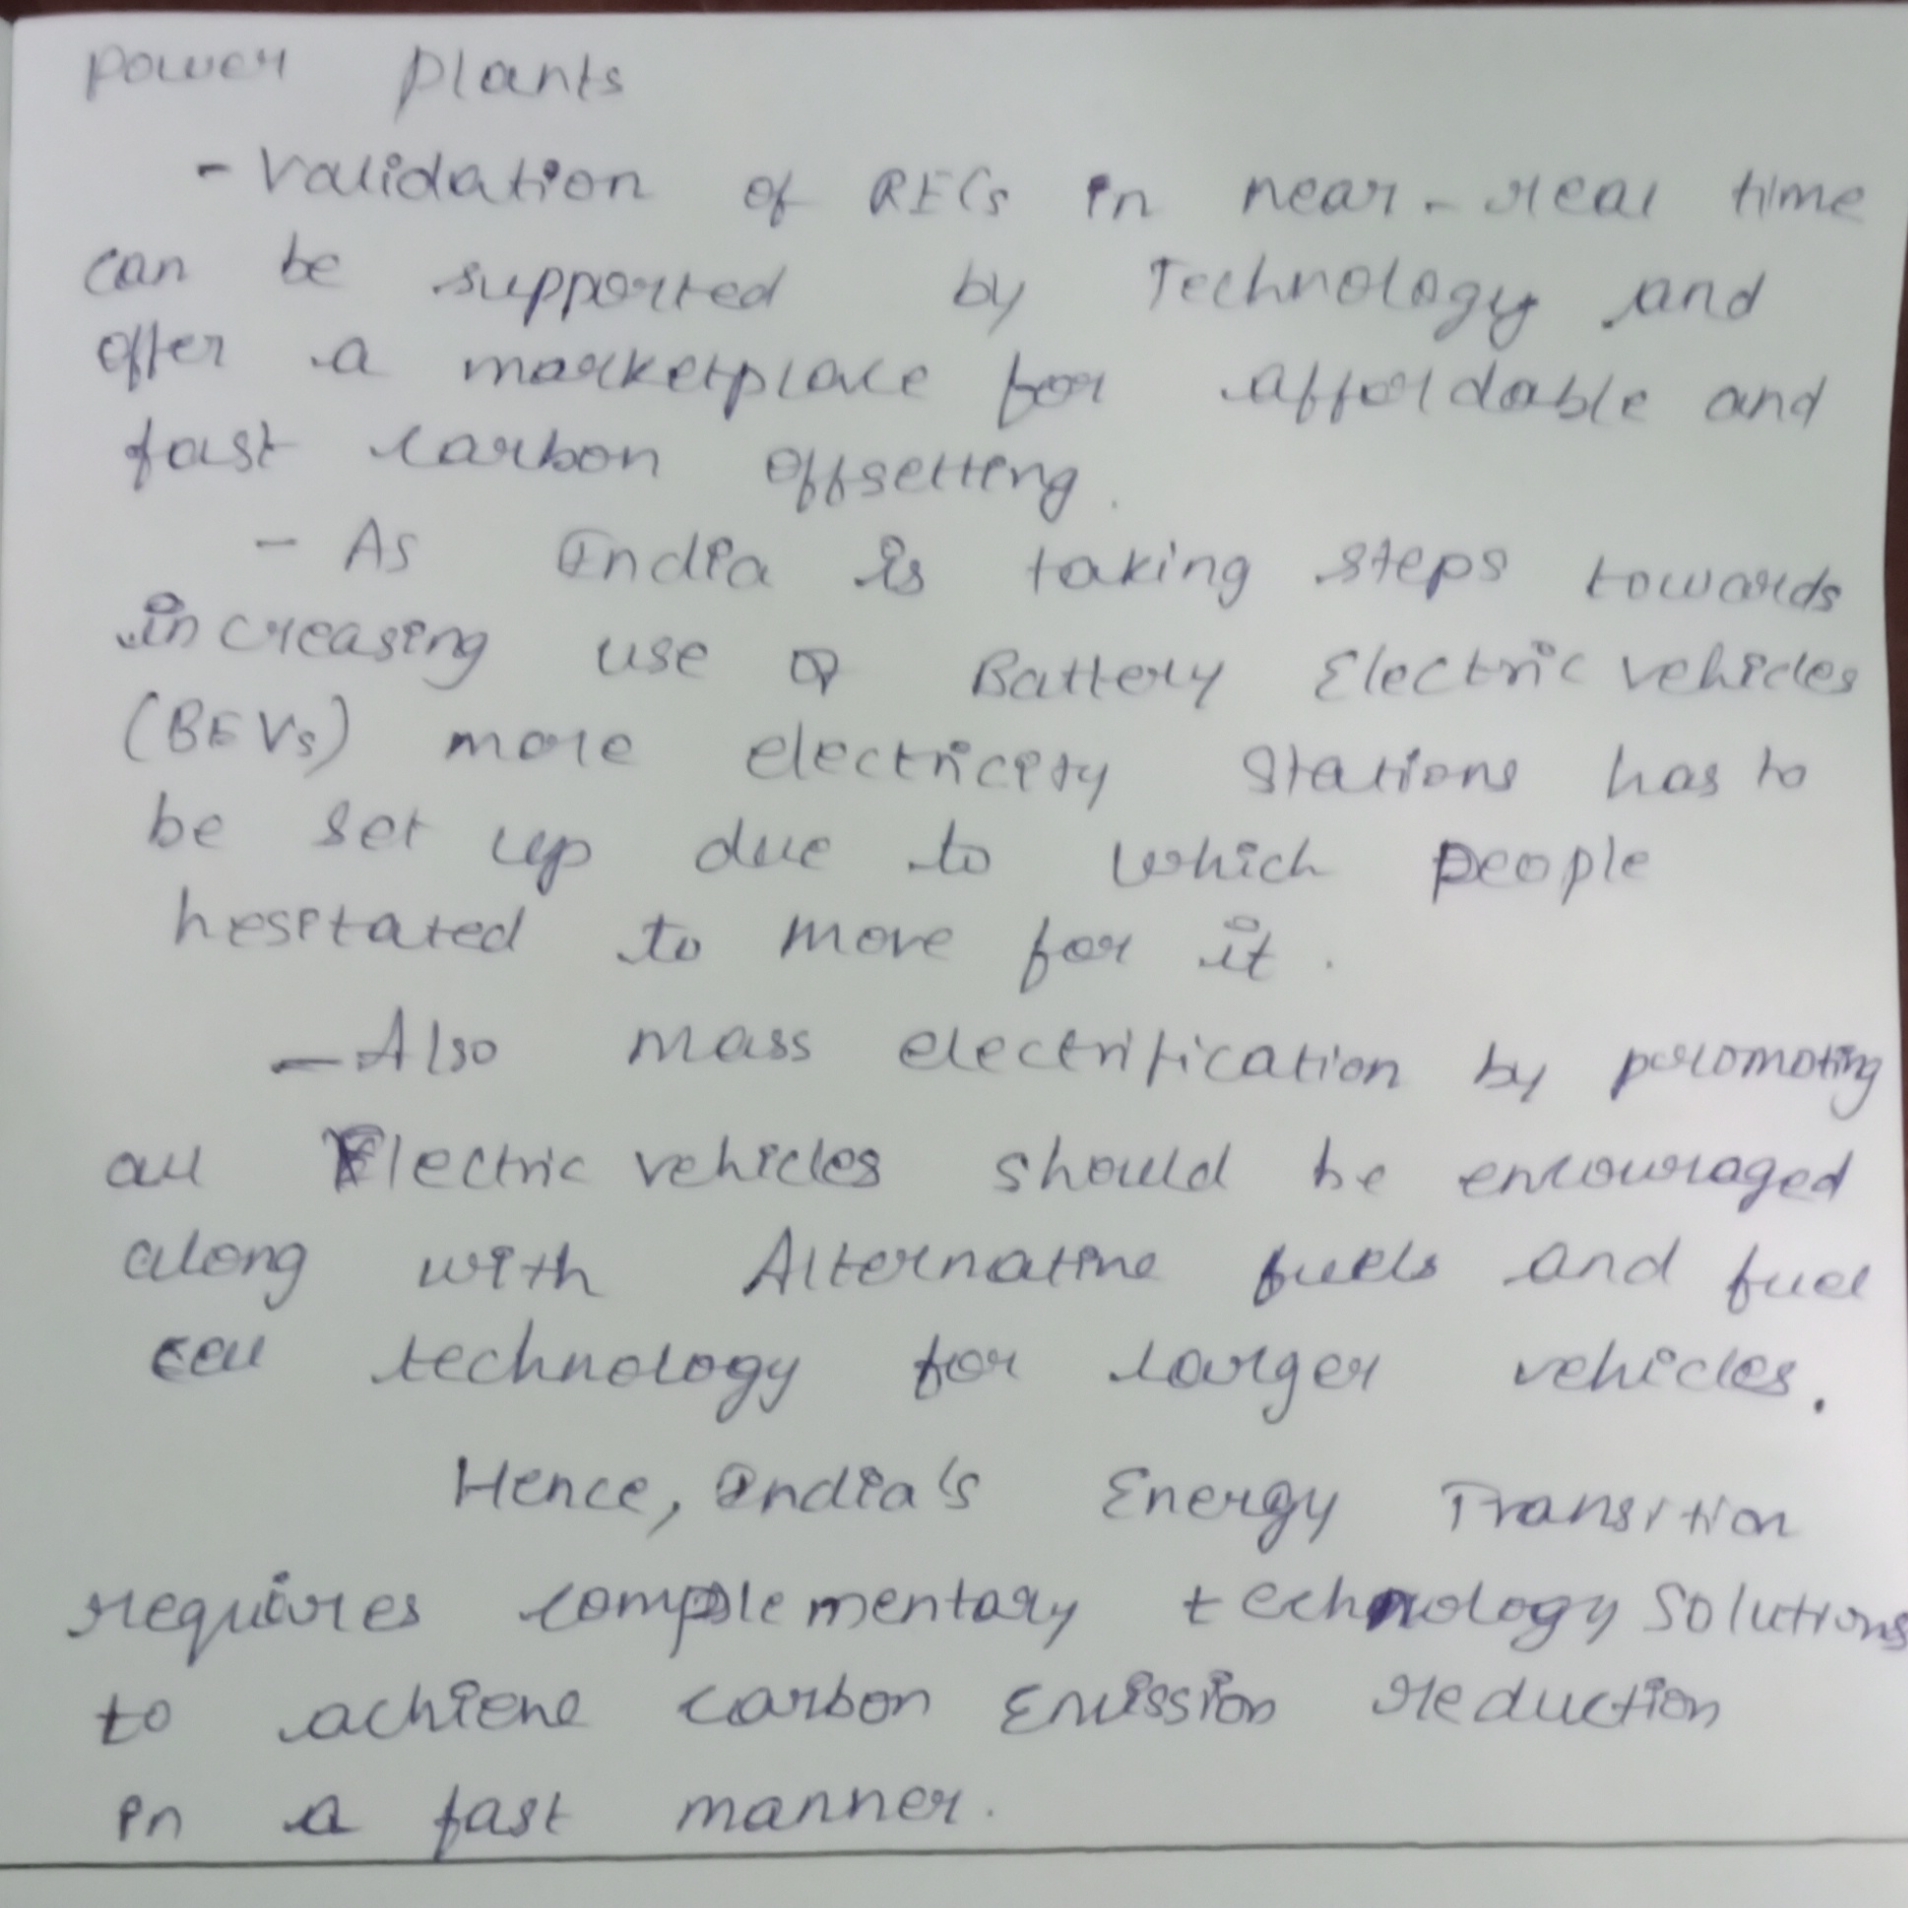 Power Plants
- Validation of RECs in near-real time
can be supported by Technology and
offer a marketplace for affordable and
fast carbon offsetting.
- As India is taking steps towards
increasing use of Battery Electric vehicles
(BEVs) more electricity stations has to
be set up due to which people
hesitated to move for it.
- Also mass electrification by promoting
all Electric vehicles should be encouraged
along with Alternative fuels and fuel
cell technology for larger vehicles.
Hence, India's Energy Transition
requires complementary technology solutions
to achieve carbon Emission reduction
in a fast manner.